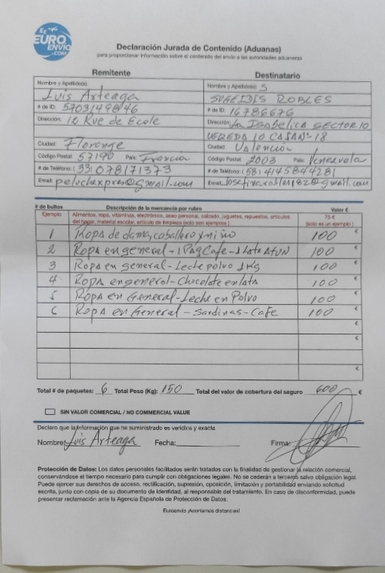 EURO
ENVIO
.COM
Declaración Jurada de Contenido (Aduanas)
para proporcionar información sobre el contenido del envío a las autoridades aduaneras
Remitente
Destinatario
Nombre y Apellido(s)
Luis Arteaga
Nombre y Apellido(s)
ROBLES
# de ID:
# de ID: 16786676
Dirección: 12 Rue de Ecole
Dirección: La Isabelica SECTOR 10
VEREDA 10 CASA Nº 18
Ciudad: Florange
Ciudad: Valencia
Código Postal: 57190 País: Francia
Código Postal: 2003 País: Venezuela
# de Teléfono: 33 078171373
# de Teléfono: 58 1 414584281
Email:
Email:
# de bultos
Descripción de la mercancía por rubro
Valor €
Ejemplo
Alimentos, ropa, vitaminas, electrónicos, aseo personal, calzado, juguetes, repuestos, artículos del hogar, material escolar, artículo de limpieza (solo son ejemplos)
75 €
(solo es un ejemplo)
1 Ropa de dama, caballero y niño 100 €
2 Ropa en general - 1 Paq Cafe - 1 Lata Atun 100
3 Ropa en general - Leche polvo 1kg 100 €
4 Ropa en general - Chocolate en lata 100 €
5 Ropa en General - Leche en Polvo 100
6 Ropa en General - Sardinas - Cafe 100
€
€
Total # de paquetes: 6 Total Peso (Kg): 150 Total del valor de cobertura del seguro 600 €
SIN VALOR COMERCIAL / NO COMMERCIAL VALUE
Declaro que la información que he suministrado es verídica y exacta
Nombre: Luis Arteaga Fecha: Firma:
Protección de Datos: Los datos personales facilitados serán tratados con la finalidad de gestionar la relación comercial,
conservándose el tiempo necesario para cumplir con obligaciones legales. No se cederán a terceros salvo obligación legal.
Puede ejercer sus derechos de acceso, rectificación, supresión, oposición, limitación y portabilidad enviando solicitud
escrita, junto con copia de su documento de identidad, al responsable del tratamiento. En caso de disconformidad, puede
presentar reclamación ante la Agencia Española de Protección de Datos.
Euroenvio ¡Acortamos distancias!